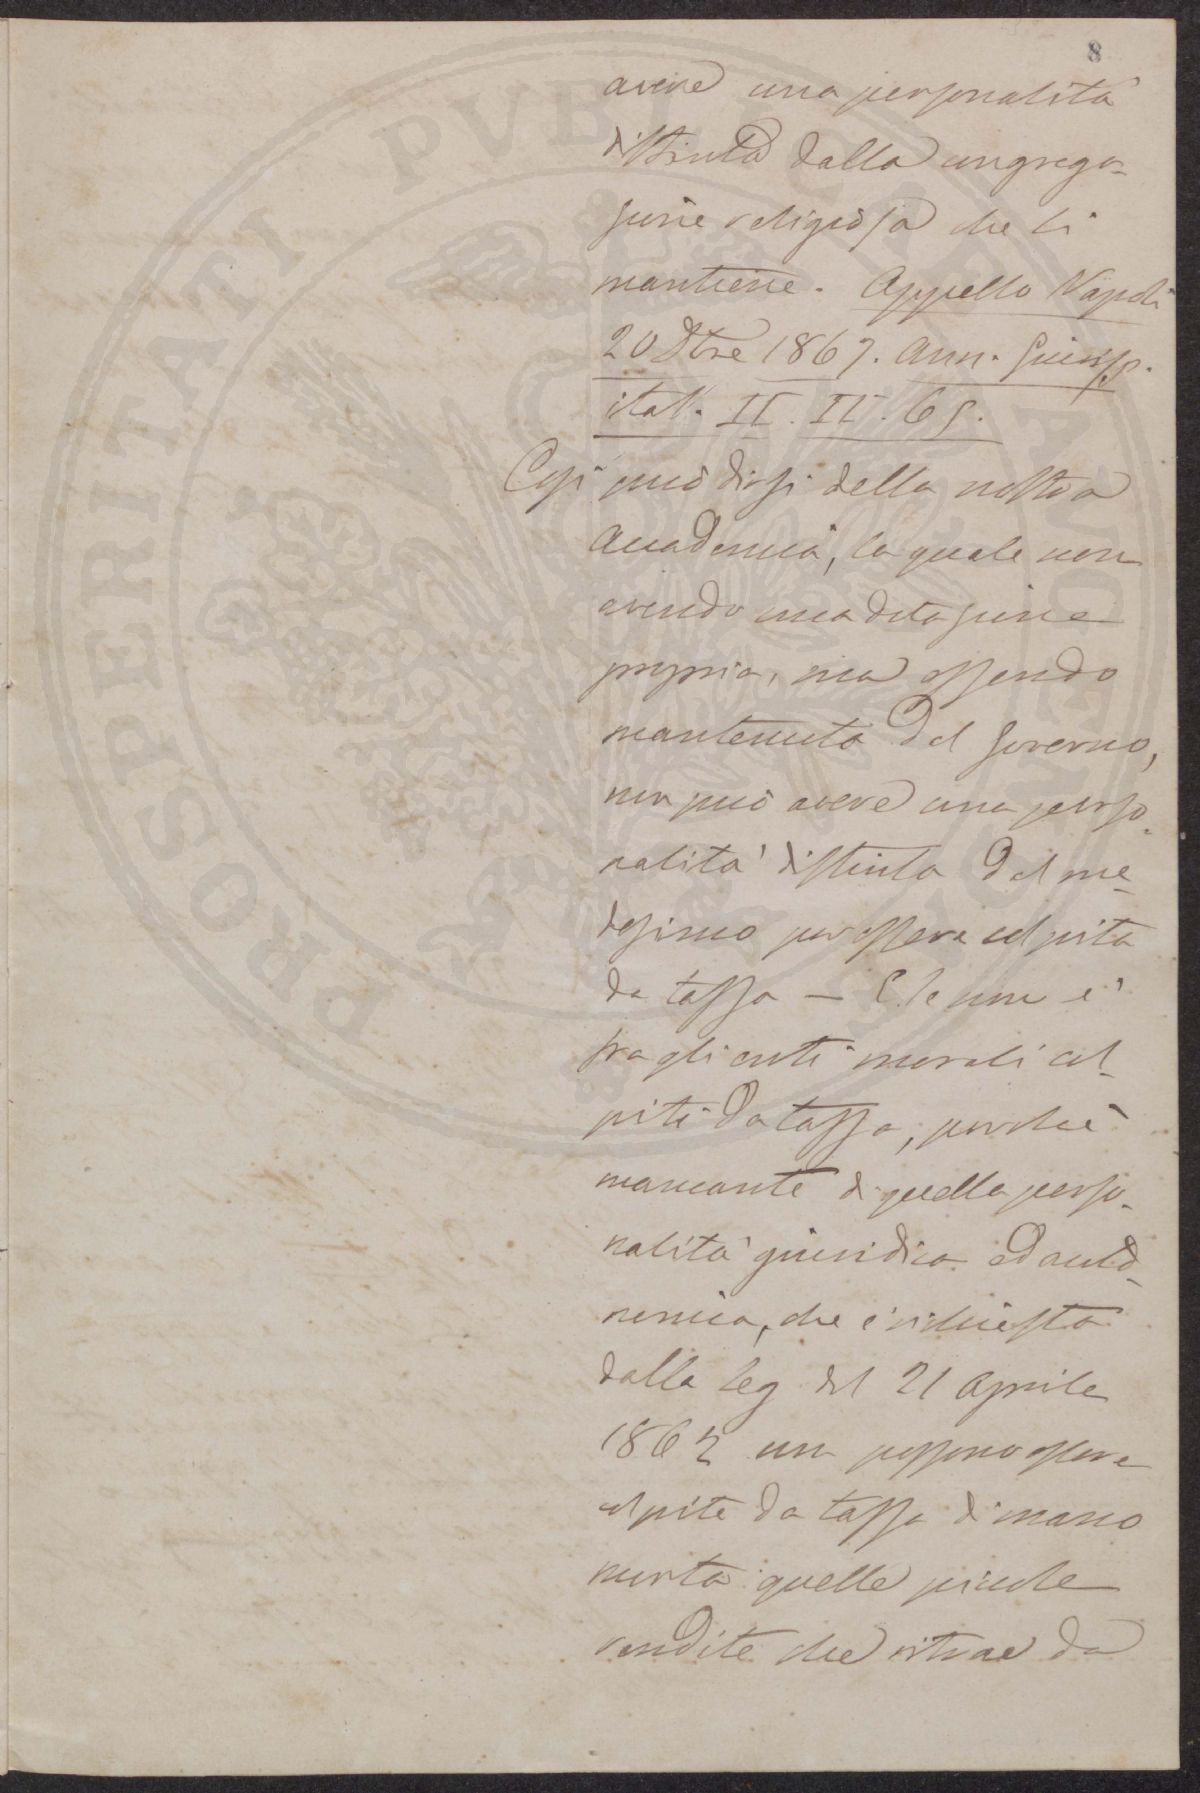 8
avere una personalità
distinta dalla congrega-
zione religiosa che li
mantiene. Appello Napoli
20 Dbre 1867. Ann. Giurisp.
ital. II. II. 65.
Così può dirsi della nostra
Accademia, la quale non
avendo una dotazione
propria, ma essendo
mantenuta dal Governo,
non può avere una perso-
nalità distinta dal me-
desimo per essere colpita
da tassa — E se non è
fra gli enti morali col-
piti da tassa, perchè
mancante di quella perso-
nalità giuridica ed auto-
nomica, che è richiesta
dalla leg del 21 Aprile
1862 non possono essere
colpite da tassa di mano
morta quelle piccole
rendite che ritrae da
PROSPERITATI PVBLICAE AVGENDAE